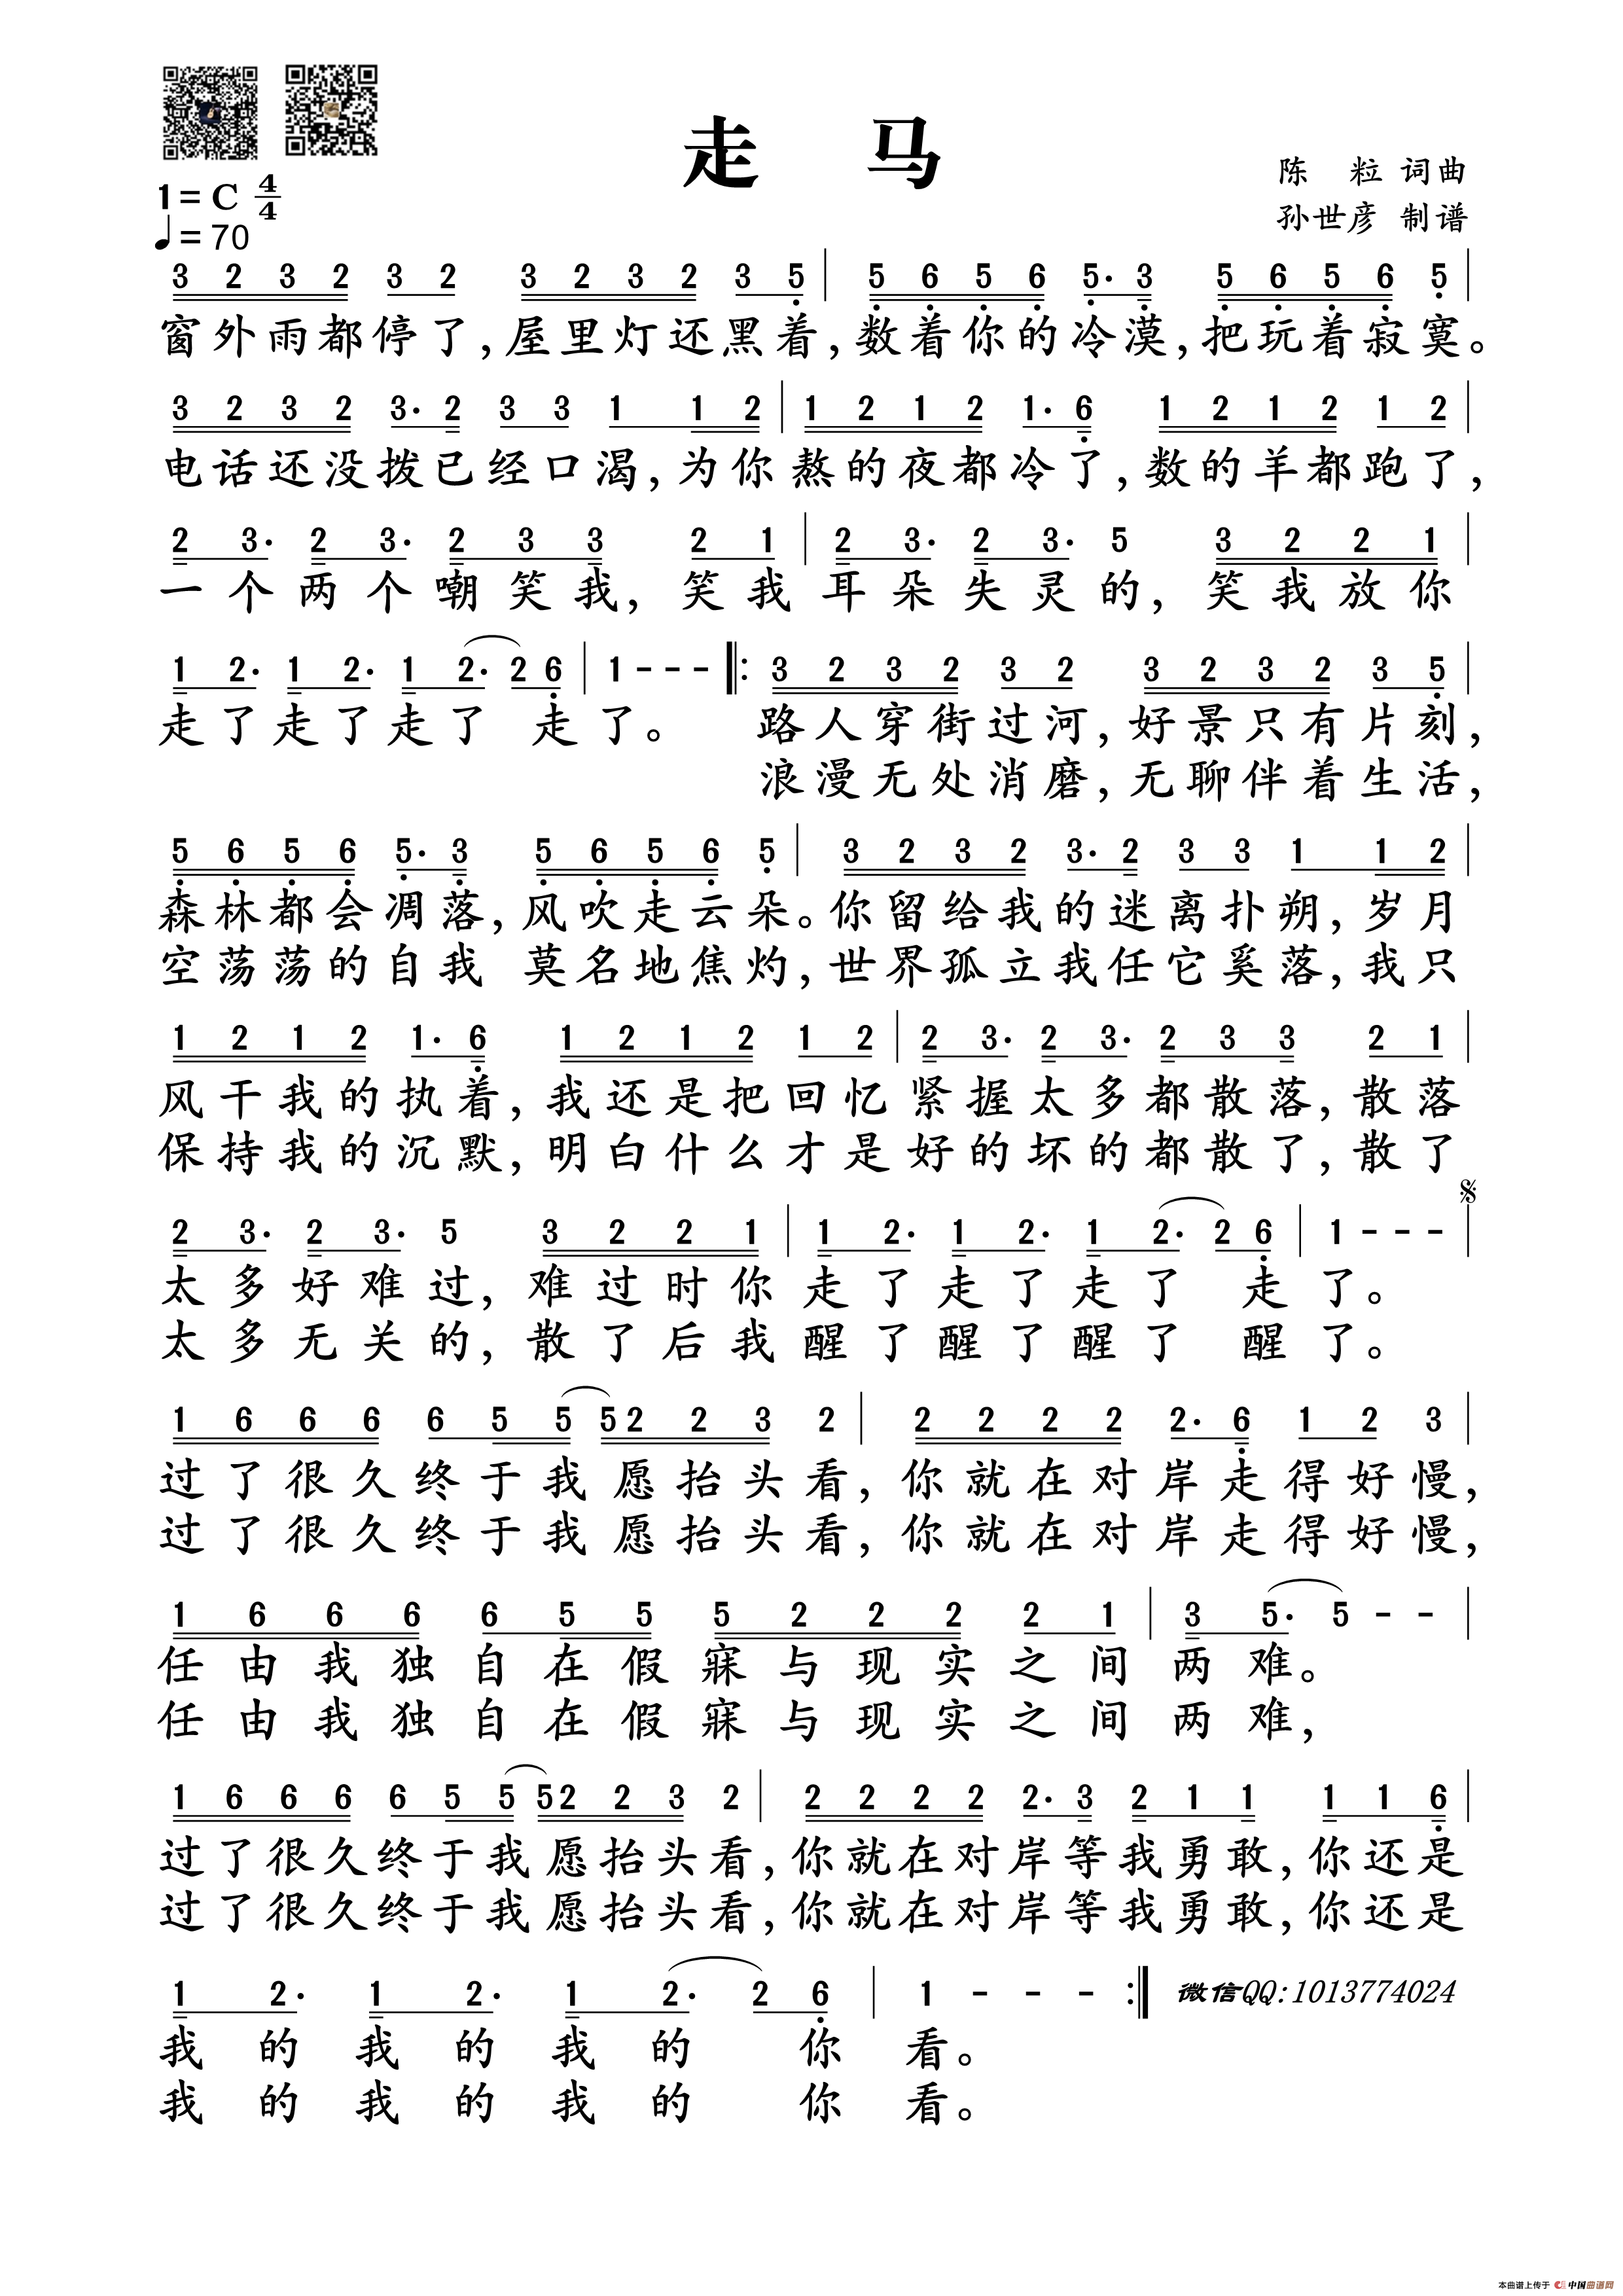 走 马
陈 粒 词曲
孙世彦 制谱
1= C 4/4
♩= 70
3 2 3 2 3 2 3 2 3 2 3 5 | 5 6 5 6 5· 3 5 6 5 6 5 |
窗外雨都停了,屋里灯还黑着,数着你的冷漠,把玩着寂寞。
3 2 3 2 3· 2 3 3 1 1 2 | 1 2 1 2 1· 6 1 2 1 2 1 2 |
电话还没拨已经口渴,为你熬的夜都冷了,数的羊都跑了,
2 3· 2 3· 2 3 3 2 1 | 2 3· 2 3· 5 3 2 2 1 |
一个两个嘲笑我,笑我耳朵失灵的,笑我放你
1 2· 1 2· 1 2· 2 6 | 1 - - - |: 3 2 3 2 3 2 3 2 3 2 3 5 |
走了走了走了 走了。 路人穿街过河,好景只有片刻,
浪漫无处消磨,无聊伴着生活,
5 6 5 6 5· 3 5 6 5 6 5 | 3 2 3 2 3· 2 3 3 1 1 2 |
森林都会凋落,风吹走云朵。你留给我的迷离扑朔,岁月
空荡荡的自我 莫名地焦灼,世界孤立我任它奚落,我只
1 2 1 2 1· 6 1 2 1 2 1 2 | 2 3· 2 3· 2 3 3 2 1 |
风干我的执着,我还是把回忆紧握太多都散落,散落
保持我的沉默,明白什么才是好的坏的都散了,散了
2 3· 2 3· 5 3 2 2 1 | 1 2· 1 2· 1 2· 2 6 | 1 - - - |
太多好难过,难过时你走了走了走了 走了。
太多无关的,散了后我醒了醒了醒了 醒了。
1 6 6 6 6 5 5 5 2 2 3 2 | 2 2 2 2 2· 6 1 2 3 |
过了很久终于我愿抬头看,你就在对岸走得好慢,
过了很久终于我愿抬头看,你就在对岸走得好慢,
1 6 6 6 6 5 5 5 2 2 2 2 1 | 3 5· 5 - - |
任由我独自在假寐与现实之间两难。
任由我独自在假寐与现实之间两难,
1 6 6 6 6 5 5 5 2 2 3 2 | 2 2 2 2 2· 3 2 1 1 1 1 6 |
过了很久终于我愿抬头看,你就在对岸等我勇敢,你还是
过了很久终于我愿抬头看,你就在对岸等我勇敢,你还是
1 2· 1 2· 1 2· 2 6 | 1 - - - :| 微信QQ:1013774024
我的我的我的 你看。
我的我的我的 你看。
本曲谱上传于 中国曲谱网